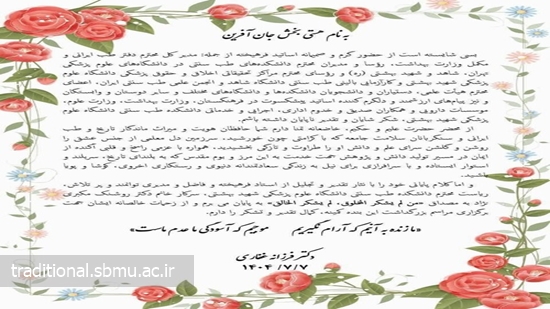 به نام هستی بخش جان آفرین
بسی شایسته است از حضور گرم و صمیمانه اساتید فرهیخته از جمله: مدیر کل محترم دفتر طب ایرانی و
مکمل وزارت بهداشت، رؤسا و مدیران محترم دانشکده‌های طب سنتی در دانشگاه‌های علوم پزشکی
تهران، شاهد و شهید بهشتی (ره) و رؤسای محترم مرکز تحقیقاتی اخلاق و حقوق پزشکی دانشگاه علوم
پزشکی شهید بهشتی و کارآزمایی بالینی طب سنتی دانشگاه شاهد و انجمن علمی طب سنتی ایران، اعضای
محترم هیأت علمی، دستیاران و دانشجویان دانشکده‌ها و دانشگاه‌های مختلف و سایر دوستان و وابستگان
و نیز پیام‌های ارزشمند و دلگرم کننده اساتید پیشکسوت در فرهنگستان، وزارت بهداشت، وزارت علوم،
موسسات دارویی و همکاران صدیق و خدوم اداری، اجرایی و خدماتی دانشکده طب سنتی دانشگاه علوم
پزشکی شهید بهشتی، شکر شایان و تقدیر نمایان داشته باشم.
از محضر حضرت علیم و حکیم، عاضمانه تمنا دارم شما حافظان هویت و میراث ماندگار تاریخ و طب
ایرانی و سنگربانان سلامت جامعه که با کرامتی چون خورشید، سرزمین دل معلمی از جنس عشق را
روشن و گلشن سرای علم و دانش او را طراوت و تازگی بخشیدید، همواره با عزمی راسخ و قلبی آکنده از
ایمان در مسیر تولید دانش و پژوهش جهت خدمت به این مرز و بوم مقدس که به بلندای تاریخ، سربلند و
استوار ایستاده و با سرافرازی برای نیل به زندگی سعادتمندانه دنیوی و رستگاری اخروی، کوشا و پویا
باشید.
و اما کلام پایانی خود را با نثار تقدیر و تجلیل از استاد فرهیخته و فاضل و مدیری توانمند و پر تلاش،
ریاست محترم دانشکده طب سنتی دانشگاه علوم پزشکی شهید بهشتی، سرکار خانم دکتر روشنک مکبری
نژاد به مصداق «من لم یشکر المخلوق، لم یشکر الخالق» به پایان می برم و از زحمات خالصانه ایشان جهت
برگزاری مراسم بزرگداشت این بنده کمینه، کمال تقدیر و تشکر را دارم.
«ما زنده به آنیم که آرام نگیریم موجیم که آسودگی ما عدم ماست»
دکتر فرزانه غفاری
۱۴۰۴/۷/۷
traditional.sbmu.ac.ir